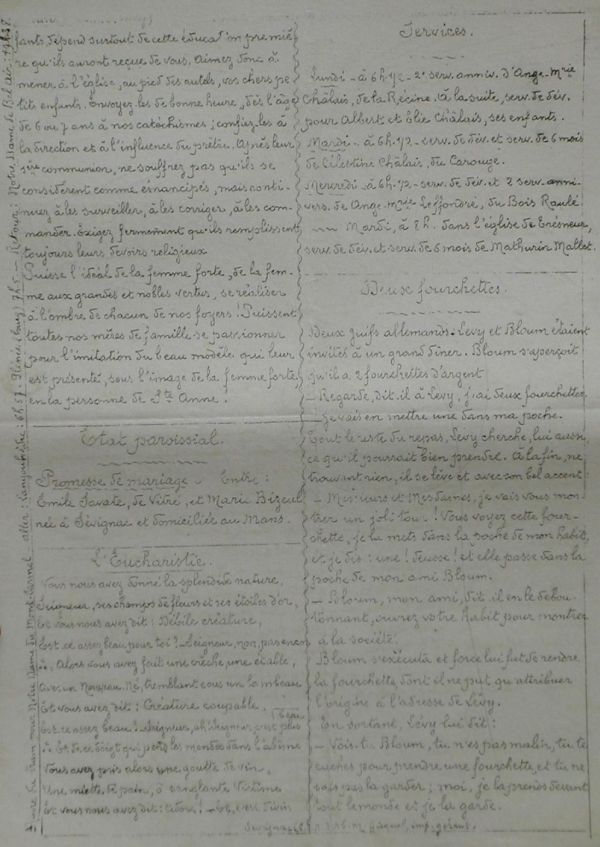 fants dépend surtout de cette éducat'on premiè
re qu'ils auront reçue de vous. Aimez donc à
mener à l'église, au pied des autels, vos chers pe
tits enfants. Envoyez-les de bonne heure, dès l'âge
de 6 ou 7 ans à nos catéchismes ; confiez-les à
la direction et à l'influence du prêtre. Après leur
1ère communion, ne souffrez pas qu'ils se
considèrent comme émancipés, mais conti-
nuez à les surveiller, à les corriger, à les com-
mander. Exigez fermement qu'ils remplissent
toujours leurs devoirs religieux.
Puisse l'idéal de la femme forte, de la fem-
me aux grandes et nobles vertus, se réaliser
à l'ombre de chacun de nos foyers ! Puissent
toutes nos mères de famille se passionner
pour l'imitation du beau modèle qui leur
est présenté, sous l'image de la femme forte
en la personne de Ste Anne !
Etat paroissial.
Promesse de mariage. Entre :
Emile Savate, de Vitré, et Marie Bizeul
née à Sévignac et domiciliée au Mans.
L'Eucharistie.
Vous nous avez donné la splendide nature,
Seigneur, ses champs de fleurs et ses étoiles d'or,
Et vous nous avez dit : Débile créature,
Est-ce assez beau pour toi ? Seigneur, non, pas encor
Alors vous avez fait une crèche, une étable,
Avec un Nouveau-Né, tremblant sous un lambeau
Et vous avez dit : Créature coupable,
Est-ce assez beau ? Seigneur, ah ! Seigneur c'est plus
beau
Vous avez pris alors une goutte de vin,
Une miette de pain, ô sanglante Victime
Et vous nous avez dit :
Services.
Lundi - à 6h 1/2 - 2e serv. anniv. d'Ange-Mrie
Châlais, de la Récine. A la suite, serv. de dév.
pour Albert et Elie Châlais, ses enfants.
Mardi - à 6h. 1/2 - serv. de dév. et serv. de 6 mois
de Célestine Châlais, du Carouge.
Mercredi - à 6h. 1/2 - serv. de dév. et 2 serv. anni-
vers. de Ange-Mrie Leffondré, du Bois Raulé
Mardi, à 8h. dans l'église de Trésneur,
serv. de dév. et serv. de 6 mois de Mathurin Mallet.
Deux fourchettes.
Deux juifs allemands. Lévy et Bloum étaient
invités à un grand dîner. Bloum s'aperçoit
qu'il a 2 fourchettes d'argent
- Regarde, dit-il à Lévy, j'ai deux fourchettes
- je vais en mettre une dans ma poche.
Tout le reste du repas, Lévy cherche, lui aussi,
ce qu'il pourrait bien prendre. A la fin, ne
trouvant rien, il se lève et avec son bel accent :
- Messieurs et Mesdames, je vais vous mon-
trer un joli tour ! Vous voyez cette four-
chette, je la mets dans la poche de mon habit,
et je dis : une ! deusse ! et elle passe dans la
poche de mon ami Bloum.
- Bloum, mon ami, dit-il en le débou-
tonnant, ouvrez votre habit pour montrer
à la société.
Bloum s'exécuta et force lui fut de rendre
la fourchette dont il ne put qu'attribuer
l'origine à l'adresse de Lévy.
En sortant, Lévy lui dit :
- Vois-tu Bloum, tu n'es pas malin, tu te
caches pour prendre une fourchette, et tu ne
sais pas la garder ; moi, je la prends devant
tout le monde et je la garde.